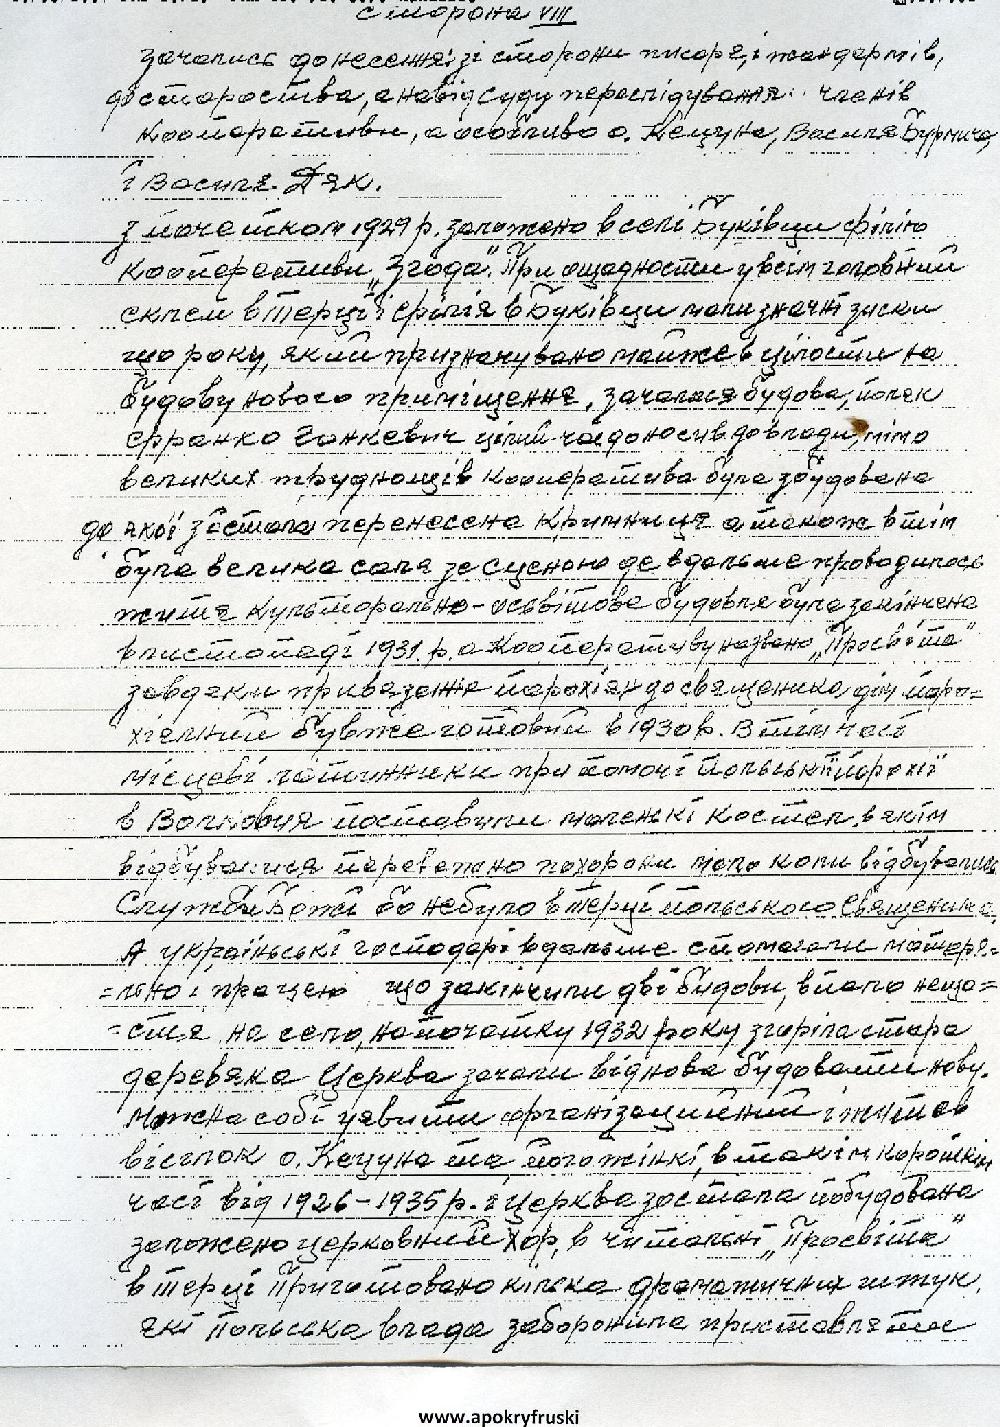 сторона VIII
зачались донесення: зі сторони писаря, і жандармів,
до староства, а навід суду переслідування членів
Кооперативи, а особливо о. Кецуна, Василя Бурмича,
і Василя Дяк.
з початком 1929 р. заложено в селі Буківци філію
Кооперативи „Згода". При ощадности у всім головний
склеп в Терці і філія в Буківци мали значні зиски
що року, який призначувано майже в цілости на
будову нового приміщення, зачалася будова,
Франко Ганкевич цілий час доносив до влади, мімо
великих труднощів Кооператива була збудована
до якої зістала перенесена Крамниця а також в тім
була велика саля зе сценою де вдальше проводилось
житя культорально-освітове будовля була закінчена
в листопаді 1931. р. а Кооперативу названо „Просвіта"
завдяки привязання парохіян до священика дім паро=
хіяльний був вже готовий в 1930 р. В тім часі
місцеві латинники при помочі Польської парохії
в Волковия поставили маленкі костел, в якім
відбувалися переважно похорони мало коли відбувались
Служби Божі бо не було в Терці польського Священика.
А українські господарі вдальше спомагали матеря=
=льно і працею що закінчили дві будови, впало неща=
=стя на село, на початку 1932 року згоріла стара
деревяна Церква зачали віднова будовати нову.
Можна собі уявити організацийний і житєв
висілок о. Кецуна та його жінкі, в такім короткім
часі від 1926-1935 р. і Церква зостала побудована
заложено церковний хор, в читальні „Просвіта"
в Терці Приготовано кілька драматичних штук,
які Польська влада заборонила приставляти
www.apokryfruski